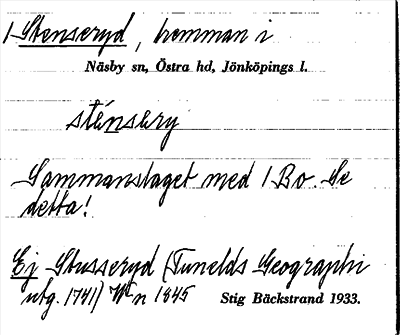 1 Stenseryd, hemman i
Näsby sn, Östra hd, Jönköpings l.
sténsery
Sammanslaget med 1 Bo. Se
detta!
Ej Stusseryd (Tunelds Geographi
utg. 1741) Wn 1845 Stig Bäckstrand 1933.